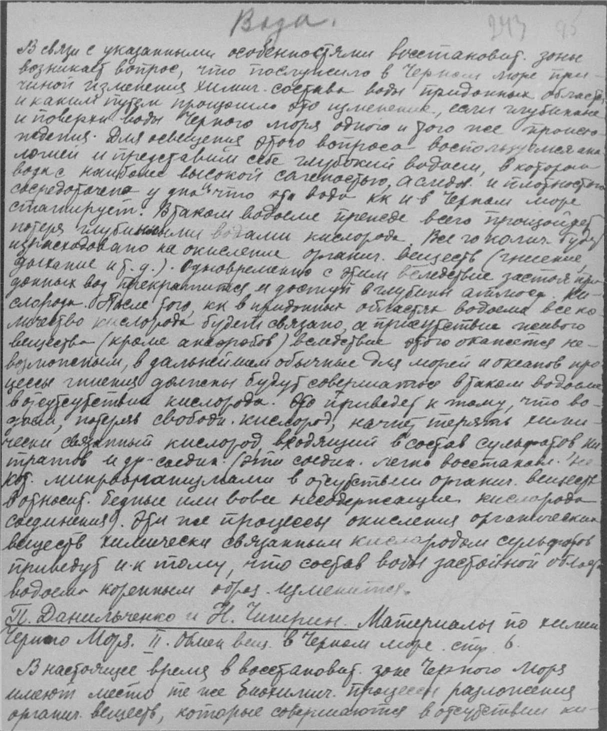 Вода.
243 95
В связи с указанными особенностями восстановит. зоны
возникает вопрос, что послужило в Черном море при-
чиной изменения химич. состава воды придонных областей
и каким путем произошло это изменение, если глубинные
и поверхн. воды Черного моря одного и того же проис-
хождения. Для освещения этого вопроса воспользуемся ана-
логией и представим себе глубокий водоем, в котором
вода с наиболее высокой соленостью, а следов. и плотностью
сосредоточена у дна и что эта вода кк и в Черном море
стагнирует. В таком водоеме прежде всего произойдет
потеря глубинными водами кислорода. Все го колич. будет
израсходовано на окисление органич. веществ (гниение,
дыхание и т.д.). Одновременно с этим вследствие застоя при-
донных вод прекратится и доступ в глубины атмосф. ки-
слорода. После того, кк в придонных областях водоема все ко-
личество кислорода будет связано, а присутствие живого
вещества (кроме анаэробов) вследствие этого окажется не-
возможным, в дальнейшем обычные для морей и океанов про-
цессы гниения должны будут совершаться в таком водоеме
в отсутствии кислорода. Это приведет к тому, что во-
доем, потеряв свободн. кислород, начнет терять хими-
чески связанный кислород, входящий в состав сульфатов, ни-
тратов и др. соедин. (Эти соедин. легко восстанавл.
кот. микроорганизмами в отсутствии органич. веществ
в относит. бедные или вовсе несодержащие кислорода
соединения). Эти же процессы окисления органических
веществ химически связанным кислородом сульфатов
приведут и к тому, что состав воды застойной области
водоема коренным образ. изменится.
П. Данильченко и Н. Чигирин. Материалы по химии
Черного Моря. II. Обмен вещ. в Черном море. стр. 6.
В настоящее время в восстановит. зоне Черного Моря
имеют место те же биохимич. процессы разложения
органич. веществ, которые совершаются в отсутствии ки-